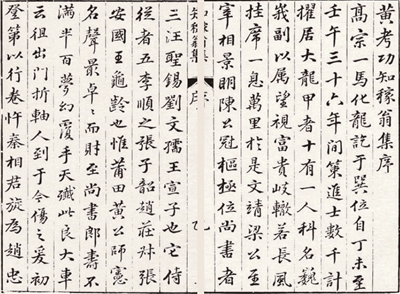 黄考功知稼翁集序
高宗一馬化龍訖于巽位自丁未至
壬午三十六年間策進士數千計
擢居大龍甲者十有一人科名巍
峩副以属望視富貴岐轍若長風
挂席一息萬里於是文靖梁公至
宰相景明陳公冠樞極位尚書者
知稼翁集 序
三汪聖錫劉文孺王宣子也它侍
從者五李順之張子韶趙莊叔張
安國王龜齡也惟莆田黄公師憲
名聲最卓卓而財至尚書郎壽不
滿半百夢幻覆手天殱此良大車
云徂出門折軸人到于今傷之爰初
登第以行卷忤秦相君旋為趙忠